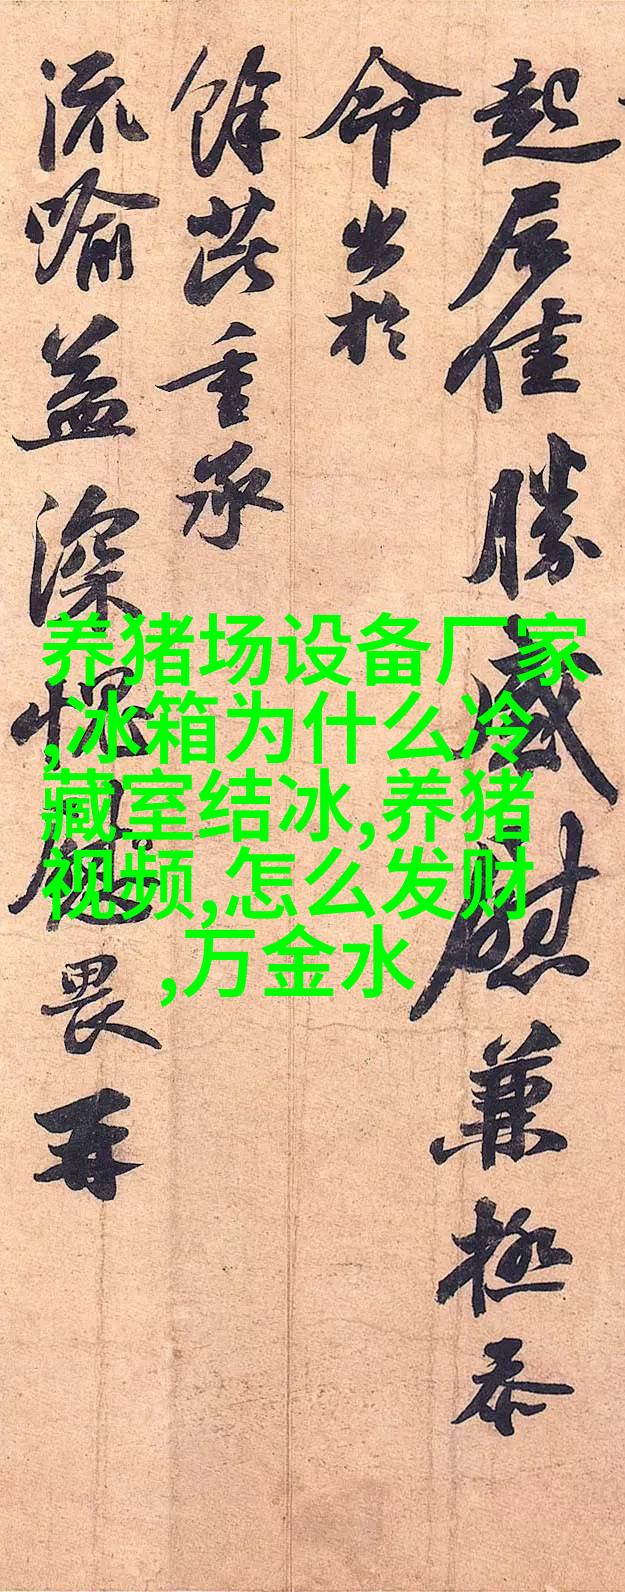 起居佳勝感慰兼極忝
命出於
餘芘重承
流喻益深愧慰畏再
养猪场设备厂家
,冰箱为什么冷
藏室结冰,养猪
视频,怎么发财
,万金水